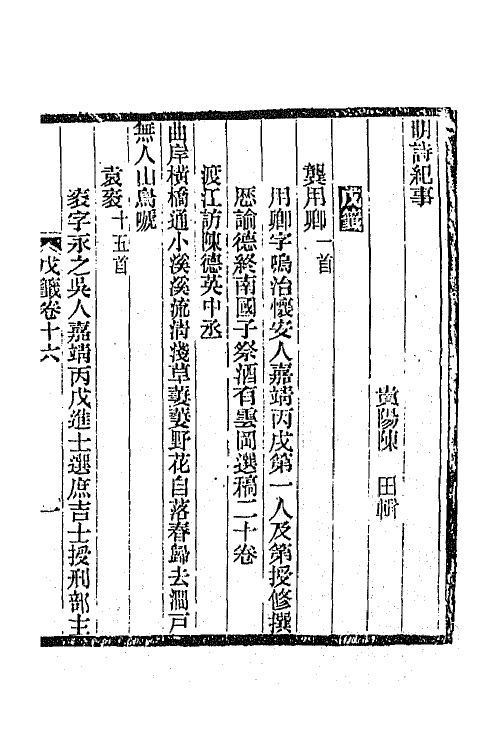 明詩紀事
貴陽陳　田輯
戊籤
龔用卿一首
用卿字鳴治懷安人嘉靖丙戌第一人及第授修撰
歷諭德終南國子祭酒有雲岡選稿二十卷
渡江訪陳德英中丞
曲岸橫橋通小溪溪流清淺草萋萋野花自落春歸去澗戶
無人山鳥嗁
袁袠十五首
袠字永之吳人嘉靖丙戌進士選庶吉士授刑部主
戊籤卷十六
一